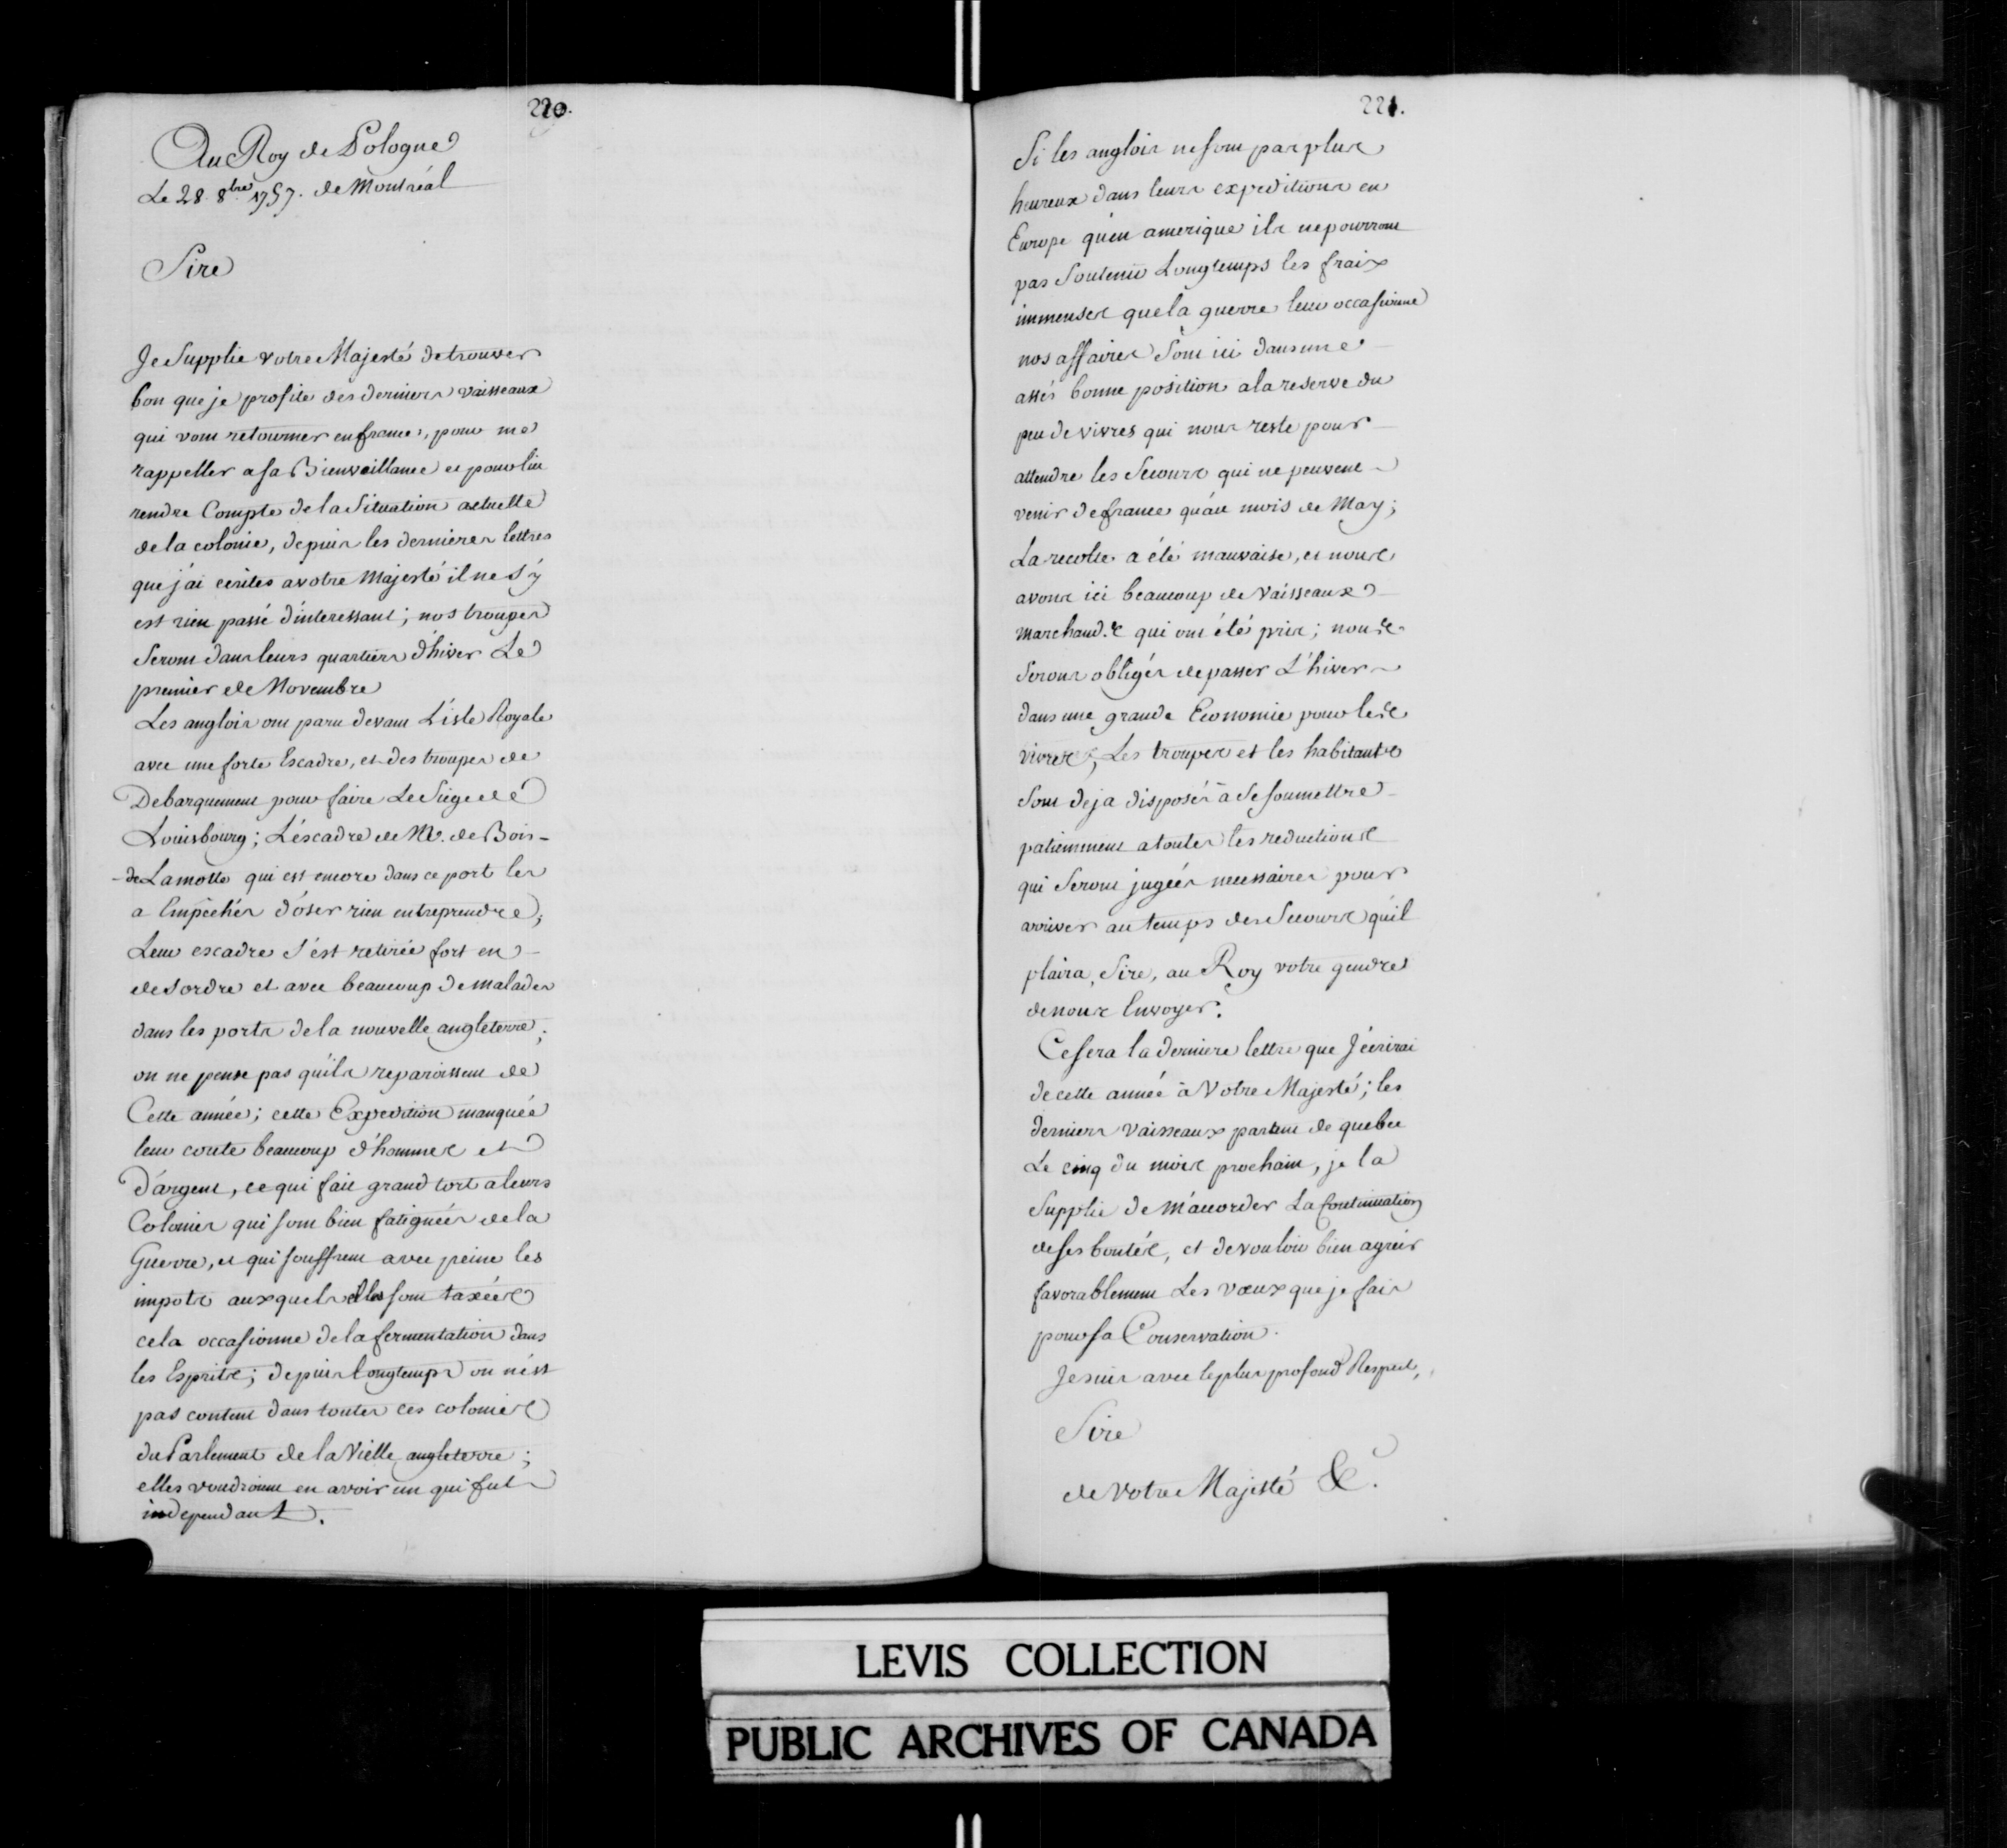 220.
Au Roy de Pologne
Le 28. 8bre 1757. de Montréal
Sire
Je Supplie votre Majesté de trouver
bon que je profite des derniers vaisseaux
qui vont retourner en france, pour me
rappeller a sa Bienveillance et pour lui
rendre Compte de la Situation actuelle
de la colonie, depuis les dernieres lettres
que j'ai ecrites a votre Majesté il ne s'y
est rien passé d'interessant; nos troupes
Seront dans leurs quartiers d'hiver Le
premier de Novembre
Les anglois ont paru devant L'isle Royale
avec une forte Escadre, et des troupes de
Debarquement pour faire Le Siege de
Louisbourg; L'escadre de Mr. de Bois-
-de Lamotte qui est encore dans ce port les
a Empêchés d'oser rien entreprendre;
Leur escadre s'est retirée fort en
desordre et avec beaucoup de malades
dans les ports de la nouvelle angleterre;
on ne pense pas qu'ils reparoissent de
Cette année; cette Expedition manquée
leur coute beaucoup d'hommes et
D'argent, ce qui fait grand tort a leurs
Colonies qui sont bien fatiguées de la
Guerre, et qui souffrent avec peine les
impots auxquels elles sont taxées
cela occasionne de la fermentation dans
les Esprits; depuis longtemps on n'est
pas content dans toutes ces colonies
du Parlement de la Vielle angleterre;
elles voudroient en avoir un qui fut
independant.
221.
Si les anglois ne sont pas plus
heureux dans leurs expeditions en
Europe qu'en amerique ils ne pourront
pas Soutenir Longtemps les fraix
immenses que la guerre leur occasionne
nos affaires Sont ici dans une
assés bonne position a la reserve du
peu de vivres qui nous reste pour
attendre les Secours qui ne peuvent
venir de france qu'au mois de May;
La recolte a été mauvaise, et nous
avons ici beaucoup de vaisseaux
marchands qui ont été pris; nous
Serons obligés de passer L'hiver
dans une grande Economie pour les
vivres, Les troupes et les habitants
Sont deja disposés à se soumettre
patiemment a toutes les reductions
qui Seront jugées necessaires pour
arriver au temps des Secours qu'il
plaira, Sire, au Roy votre gendre
de nous Envoyer.
Ce sera la derniere lettre que J'écrirai
de cette année à Votre Majesté; les
derniers vaisseaux partent de quebec
Le cinq du mois prochain, je la
Supplie de m'accorder La Continuation
de ses bontés, et de vouloir bien agréer
favorablement Les vœux que je fais
pour sa Conservation.
Je suis avec le plus profond Respect,
Sire
de Votre Majesté &c.
LEVIS COLLECTION
PUBLIC ARCHIVES OF CANADA